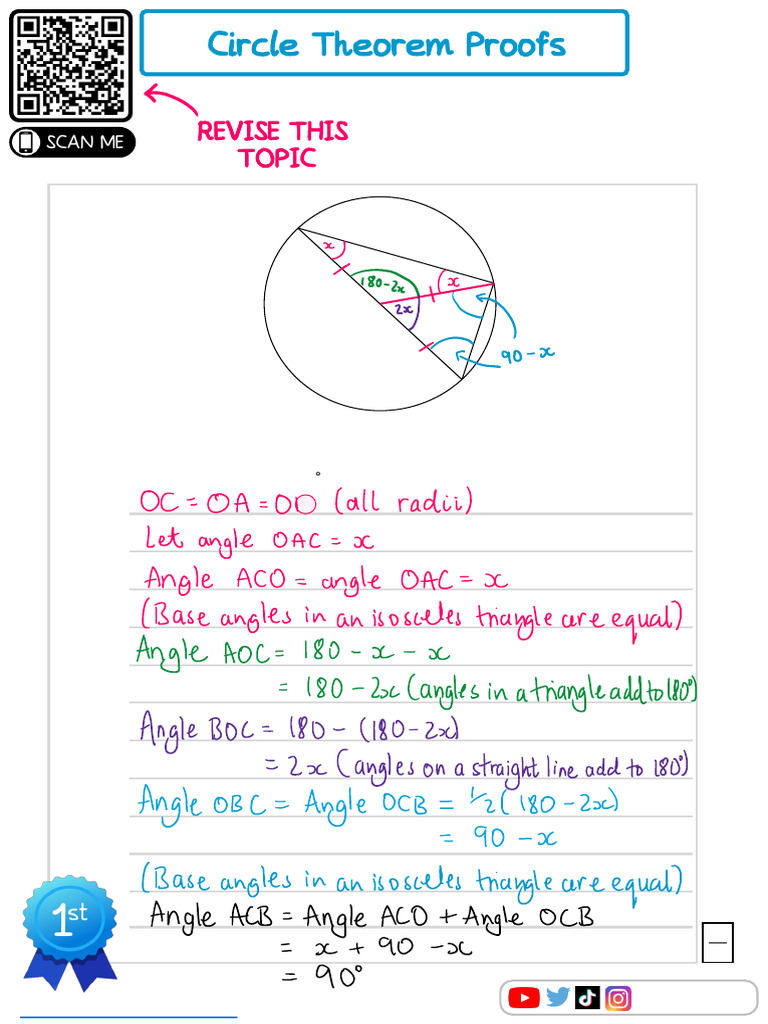 Circle Theorem Proofs
SCAN ME
REVISE THIS
TOPIC
x
180-2x
x
2x
90-x
OC = OA = OO (all radii)
Let angle OAC = x
Angle ACO = angle OAC = x
(Base angles in an isosceles triangle are equal)
Angle AOC = 180 - x - x
= 180 - 2x (angles in a triangle add to 180°)
Angle BOC = 180 - (180 - 2x)
= 2x (angles on a straight line add to 180°)
Angle OBC = Angle OCB = 1/2 (180 - 2x)
= 90 - x
(Base angles in an isosceles triangle are equal)
Angle ACB = Angle ACO + Angle OCB
= x + 90 - x
= 90°
1st